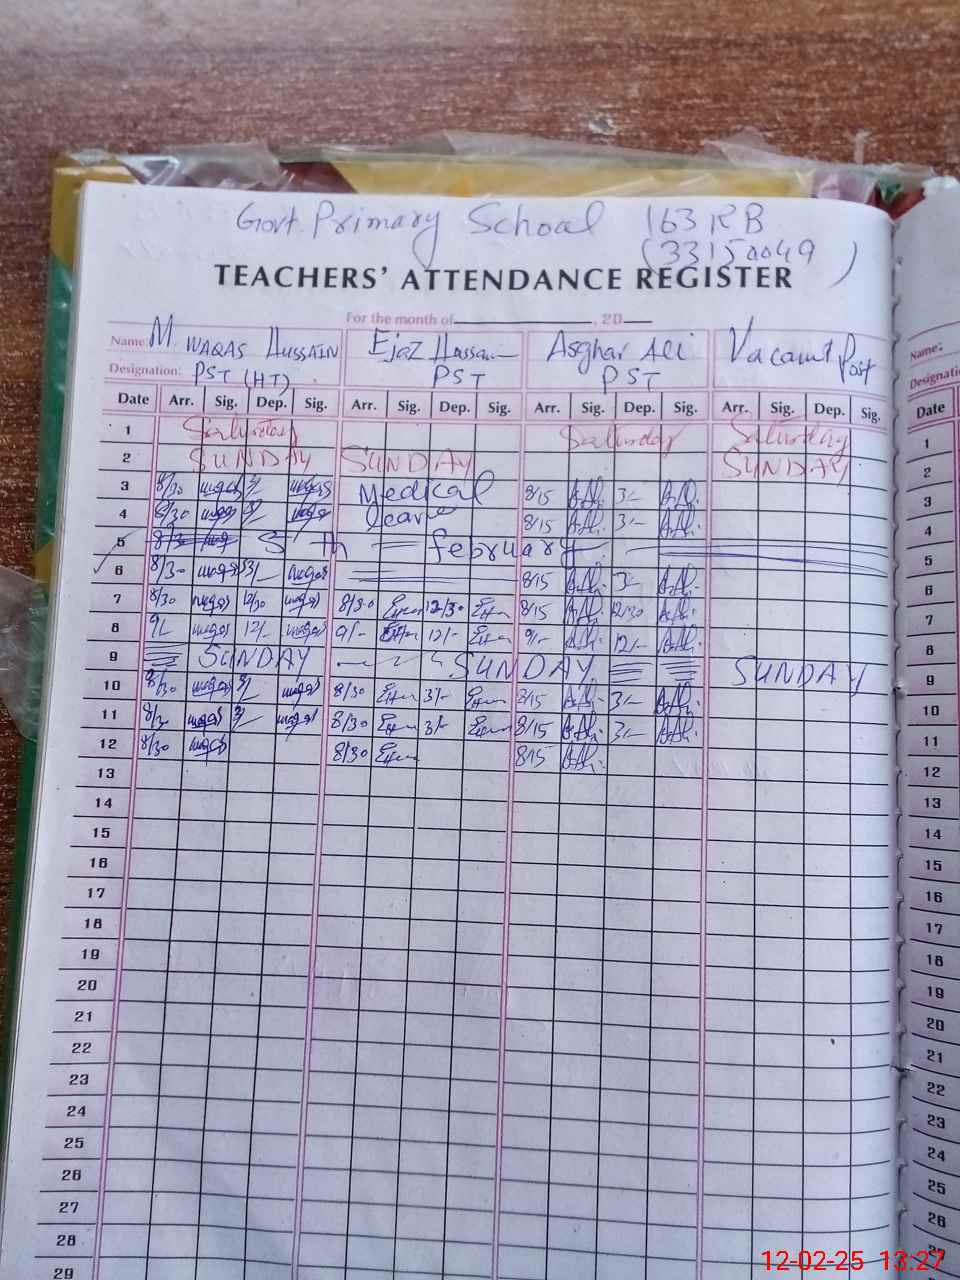 Govt. Primary School 163 RB
(33150049)
TEACHERS' ATTENDANCE REGISTER
For the month of , 20
Name: M. WAQAS HUSSAIN Ejaz Hassan Asghar Ali Vacant Post Name:
Designation: PST (HT) PST PST
Date Arr. Sig. Dep. Sig. Arr. Sig. Dep. Sig. Arr. Sig. Dep. Sig. Arr. Sig. Dep. Sig. Date
1 Saturday Saturday Saturday 1
2 SUNDAY SUNDAY SUNDAY 2
3 8/30 waqas 3/- waqas Medical 8/15 3/- 3
4 8/30 waqas waqas leave 8/15 3/- 4
5 8/30 5 th = february 5
6 8/30 waqas 3/- waqas 8/15 3/- 6
7 8/30 waqas 12/30 waqas 8/30 12/30 8/15 12/30 7
8 9/- waqas 12/- waqas 9/- 12/- 9/- 12/- 8
9 SUNDAY SUNDAY SUNDAY 9
10 8/30 waqas 3/- waqas 8/30 3/- 8/15 3/- 10
11 8/30 waqas 3/- waqas 8/30 3/- 8/15 3/- 11
12 8/30 waqas 8/30 8/15 12
13 13
14 14
15 15
16 16
17 17
18 18
19 19
20 20
21 21
22 22
23 23
24 24
25 25
26 26
27
28
29
12-02-25 13:27